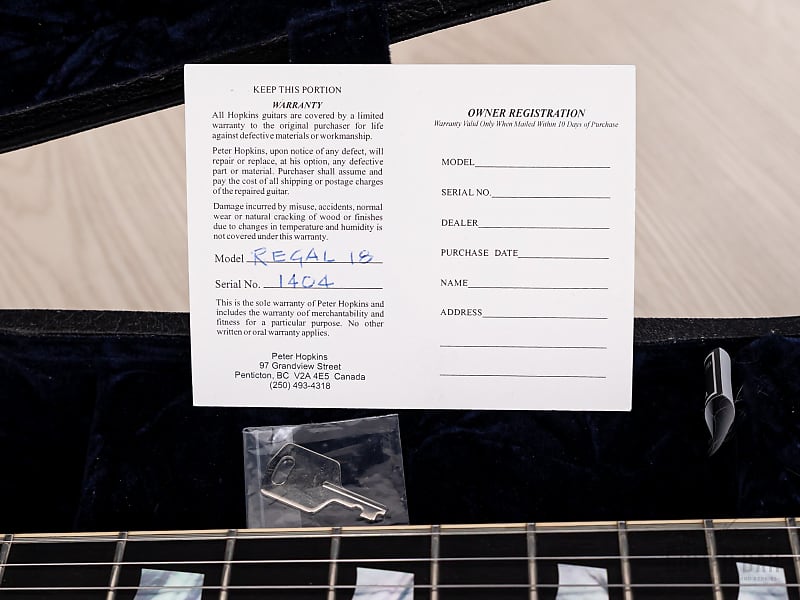 KEEP THIS PORTION
WARRANTY
All Hopkins guitars are covered by a limited
warranty to the original purchaser for life
against defective materials or workmanship.
Peter Hopkins, upon notice of any defect, will
repair or replace, at his option, any defective
part or material. Purchaser shall assume and
pay the cost of all shipping or postage charges
of the repaired guitar.
Damage incurred by misuse, accidents, normal
wear or natural cracking of wood or finishes
due to changes in temperature and humidity is
not covered under this warranty.
Model REGAL 18
Serial No. 1404
This is the sole warranty of Peter Hopkins and
includes the warranty oof merchantability and
fitness for a particular purpose. No other
written or oral warranty applies.
Peter Hopkins
97 Grandview Street
Penticton, BC V2A 4E5 Canada
(250) 493-4318
OWNER REGISTRATION
Warranty Valid Only When Mailed Within 10 Days of Purchase
MODEL
SERIAL NO.
DEALER
PURCHASE DATE
NAME
ADDRESS